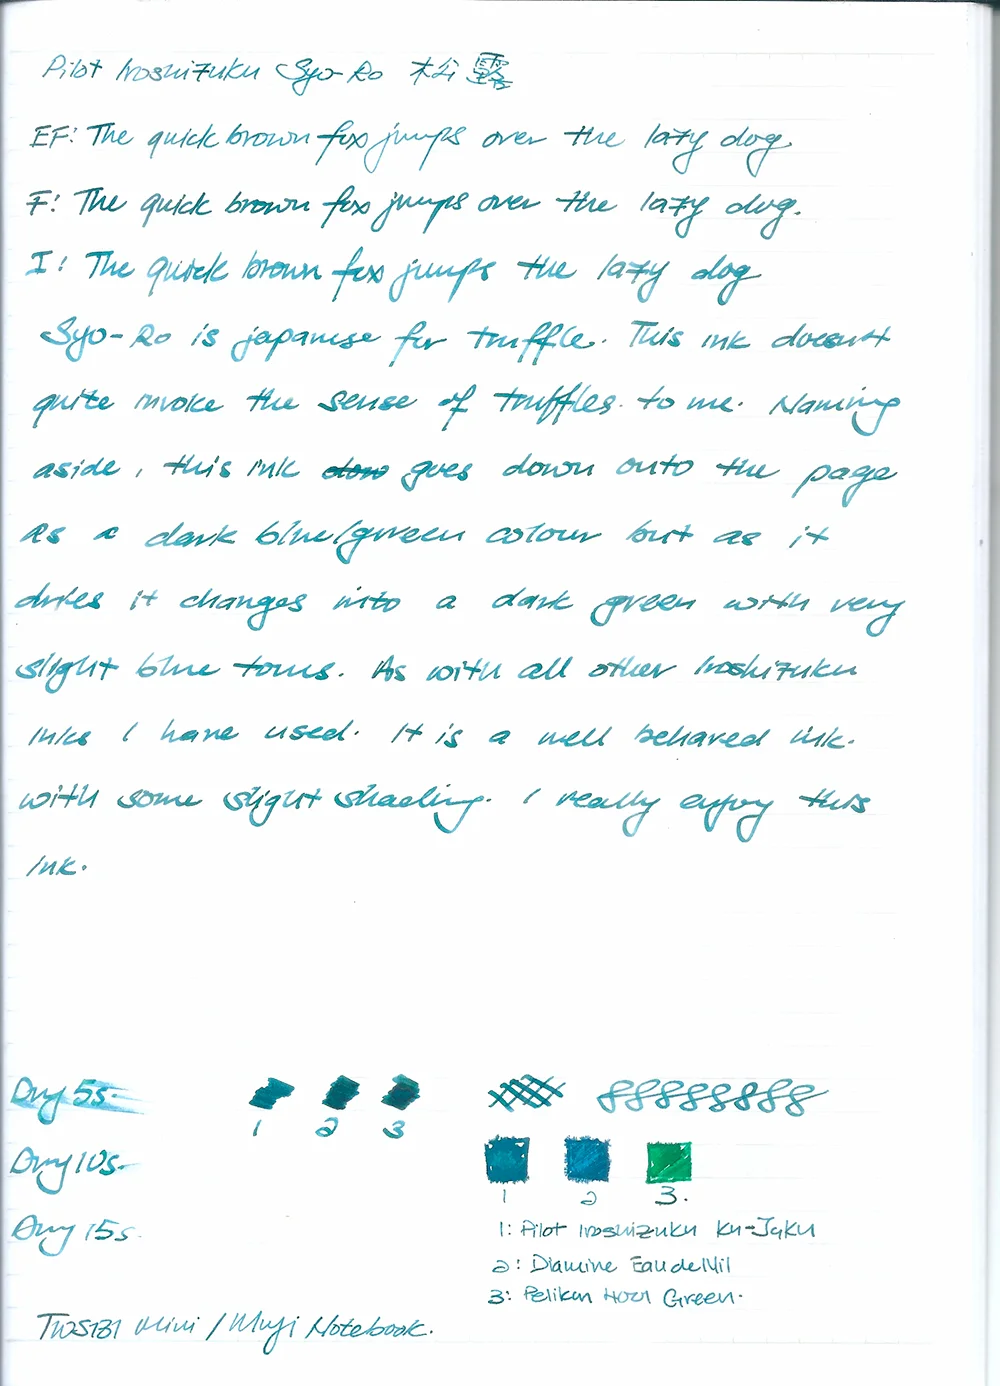 Pilot Iroshizuku Syo-Ro 松露
EF: The quick brown fox jumps over the lazy dog.
F: The quick brown fox jumps over the lazy dog.
I: The quick brown fox jumps the lazy dog
Syo-Ro is japanese for truffle. This ink doesn't
quite invoke the sense of truffles. to me. Naming
aside, this ink goes down onto the page
as a dark blue/green colour but as it
dries it changes into a dark green with very
slight blue tones. As with all other Iroshizuku
inks I have used. It is a well behaved ink.
with some slight shading. I really enjoy this
ink.
Dry 5s.
1 2 3
Dry 10s.
1 2 3.
Dry 15s.
1: Pilot Iroshizuku Ku-Jaku
2: Diamine Eau de Nil
3: Pelikan Green.
TWSBI Mini / Muji Notebook.